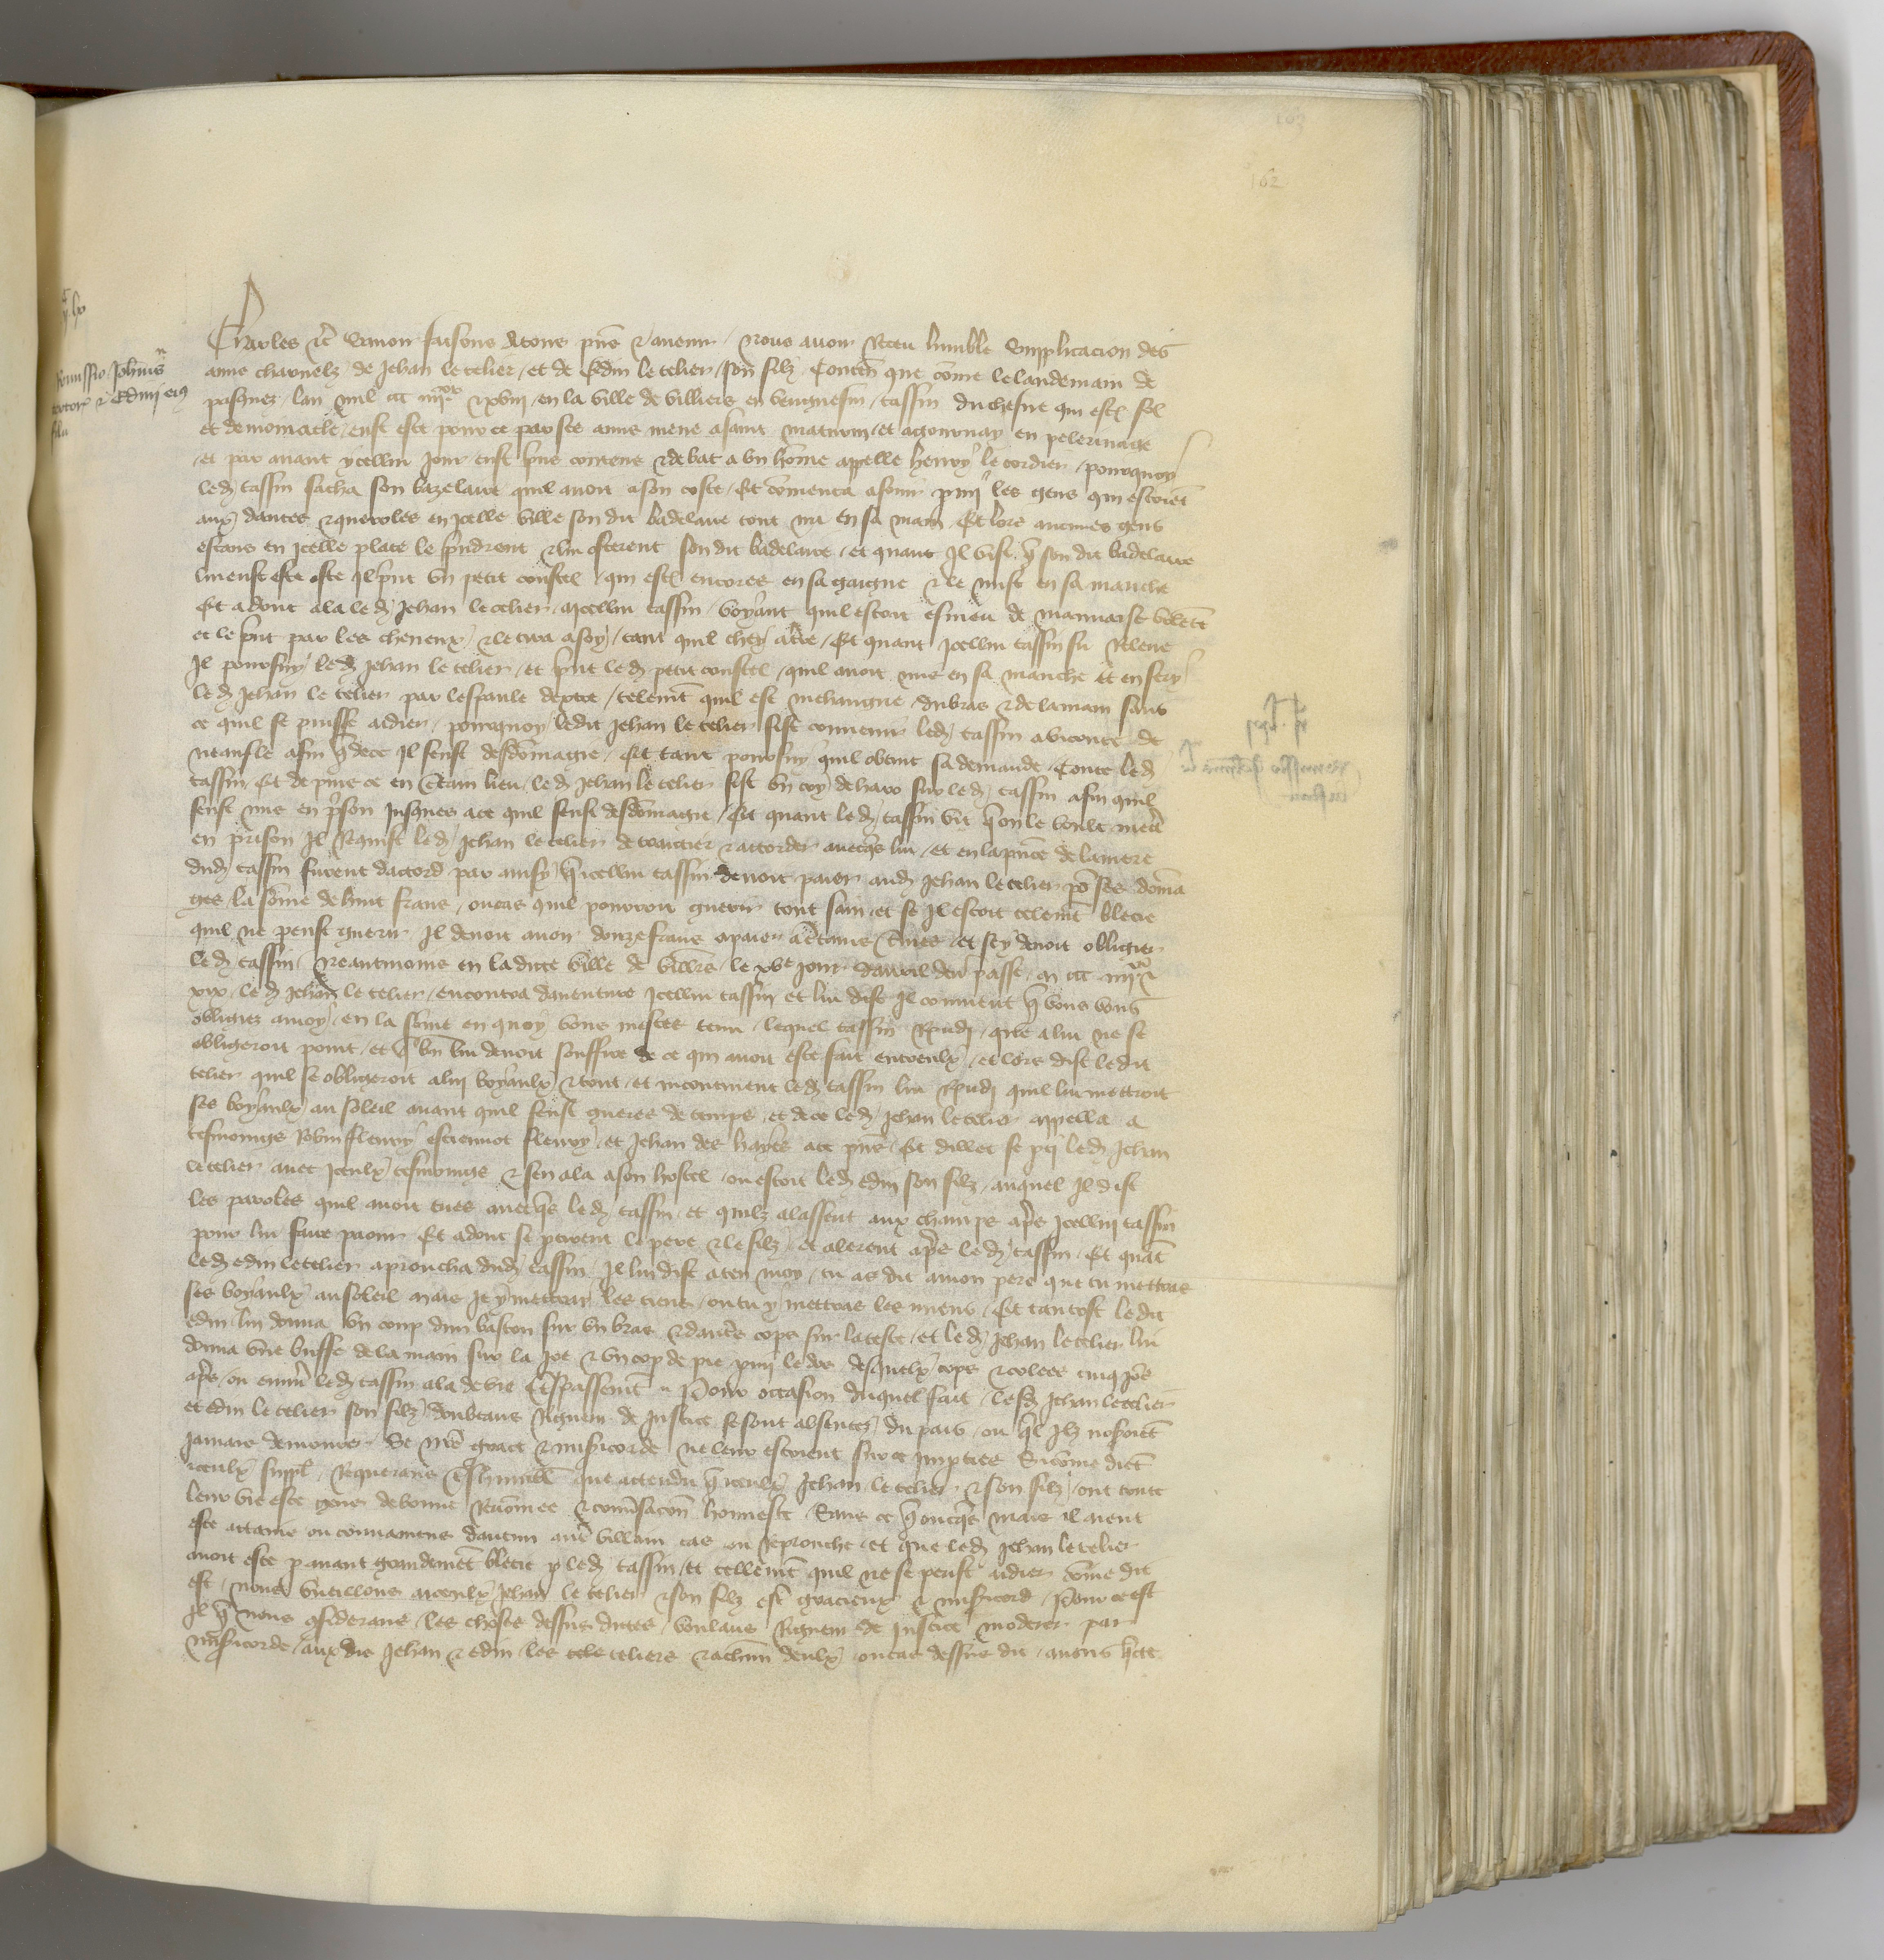 163
162
Remissio Johannis
textor & Edinj eius
filii
Charles &c savoir faisons a tous pns & avenir / Nous avoir Receu lumble supplicacion des
amis charnelz de Jehan le telier / et de Edin le telier / son filz Conten que come le landemain de
pasques / lan mil ccc iiijxx & xviij / en la ville de villiers en veuguessin / tassin duchesne qui est fol
et demoniacle / eust este pour ce par ses amis mene a saint maturin / et a gournay en pelerinage
et par avant ycellui jour eust prins contens & debat a un home appelle henry le cordier / pourquoy
led tassin sacha son bazelaire quil avoit a son coste / Et comenca a fouir parmi les gens qui estoient
aux dances & queroles en icelle ville son dit badelaire tout nu en sa main / Et lors aucunes gens
estans en icelle place le prindrent & lui osterent son dit badelaire / et quant Il vist q son dit badelaire
lui eust este oste Il print un petit coustel / qui est encores en sa gaigne & le mist en sa manche
Et adonc ala led Jehan le telier a icellui tassin / voyant quil estoit esmeu de mauvaise volente
et le print par les cheveux / & le tira a soy / tant quil chey a tre / Et quant icellui tassin fu Releve
Il poursuy led Jehan le telier / et print led petit coustel / quil avoit mis en sa manche et en fery
led Jehan le telier par lespaule dextre / telemt quil est mehaigne / du bras & de la main sans
ce quil se puisse aidier / pourquoy ledit Jehan le telier fist convenir led tassin a viconte de
neaufle afin q de ce Il feust desdomagie / Et tant poursuy quil obtint sa demande / Contre led
tassin / Et depuis ce en certain lieu / led Jehan le telier fist un cry de haro sur led tassin afin quil
feust mis en prison jusques a ce quil feust desdomagie / Et quant led tassin vit q on le vouloit mectre
en prison Il Requist led Jehan le telier de traictier & accorder avecqs lui / et en la pnce de la mere
dud tassin furent daccord par ainsy q icellui tassin devoit paier aud Jehan le telier po ses doma
ges / la some de huit frans / ou cas quil pourroit guerir tout sain / et se Il estoit telemt blecie
quil ne peust guerir Il devoit avoir douze frans a paier a certains termes / et sy devoit obligier
led tassin / Neantmoins en ladicte ville de villiers / le xve jour davril derr passe m ccc iiijxx &
xix / led Jehan le telier / encontra daventure icellui tassin et lui dist Il convient q vous vous
obligiez a moy / en la some en quoy vous mestes tenu / lequel tassin Rpndi / que a lui ne se
obligeroit point / et q bien lui devoit souffire de ce qui avoit este fait entreulx / et lors dist ledit
telier quil se obligeroit a lui boyaulx & tout / et incontinent led tassin lui Rpndi quil lui mettroit
ses boyaulx au soleil avant quil feust gueres de temps / et de ce led Jehan le telier appella a
tesmoings Robin fleury estiennot fleury / et Jehan des hayes a ce pns / Et dillec se pti led Jehan
le telier avec iceulx tesmoings & sen ala a son hostel / ou estoit led edin son filz / auquel Il dist
les paroles quil avoit eues avecqs led tassin / et quilz alassent aux champs apres Icellui tassin
pour lui faire paour Et adonc se ptirent le pere & le filz / et alerent apres led tassin / Et quant
led edin le telier aproucha dud tassin / Il lui dist aten moy / tu as dit a mon pere que tu mettras
ses boyaulx au soleil mais Je y mettray les tiens / ou tu y mettras les miens / Et tantost ledit
edin lui donna un coup dun baston sur un bras & dautres cops sur la teste / et led Jehan le telier lui
donna une buffe de la main sur la joe & un cop de pie parmi le dos / desquelx cops & colees cinq jors
apres / ou environ led tassin ala de vie a trespassement / Pour occasion duquel fait / lesd Jehan le telier
et edin le telier son filz / doubtans Rigueur de justice se sont absentez du pais / ou quel Ilz nosroient
jamais demourer / Se nre grace & misericorde ne leur estoient sur ce impties Sicome dient
iceulx suppl / Requerans treshumblement que attendu q iceulx Jehan le telier & son filz / ont toute
leur vie este gens de bonne Renomee & conversacon honneste / Sans ce q oncqs mais il aient
este attains ou convaincus daucun autre villain cas ou Reprouche / et que led Jehan le telier
avoit este p avant grandement blecie p led tassin / et tellement quil ne se peust aidier come dit
est / nous vueillons a iceulx Jehan le telier & son filz estre gracieux & misericord / Pour ce est
Il q nous considerans / les choses dessus dictes / voulans Rigueur de justice moderer par
misericorde / aux diz Jehan & edin / les tele teliers & a chun deulx / ou cas dessus dit / avons quicte